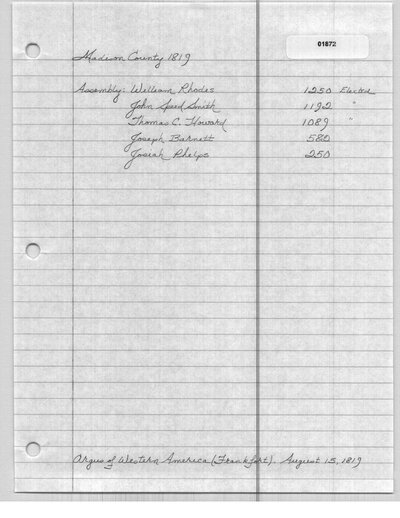 01872
Madison County 1819
Assembly: William Rhodes 1250 Elected
John Speed Smith 1192 "
Thomas C. Howard 1089 "
Joseph Barnett 580
Josiah Phelps 250
Argus of Western America (Frankfort). August 15, 1819